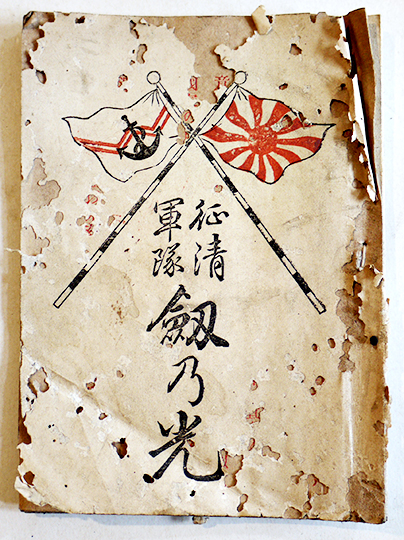 征清
軍隊
劔乃光